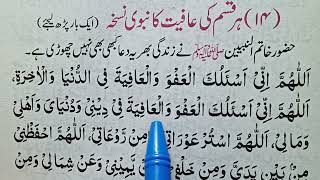 (۱۴) ہر قسم کی عافیت کا نبوی نسخہ (ایک بار پڑھ لیجئے)
حضور خاتم النبیین ﷺ نے زندگی بھر یہ دعا کبھی بھی نہیں چھوڑی ہے۔
اَللّٰهُمَّ اِنِّیْ اَسْئَلُكَ الْعَفْوَ وَالْعَافِیَةَ فِی الدُّنْیَا وَالْاٰخِرَةِ،
اَللّٰهُمَّ اِنِّیْ اَسْئَلُكَ الْعَفْوَ وَالْعَافِیَةَ فِیْ دِیْنِیْ وَدُنْیَایَ وَاَهْلِیْ
وَمَالِیْ، اَللّٰهُمَّ اسْتُرْ عَوْرَاتِیْ مِنْ رَوْعَاتِیْ، اَللّٰهُمَّ احْفَظْنِیْ
مِنْ بَیْنِ یَدَیَّ وَمِنْ خَلْفِیْ یَمِیْنِیْ وَعَنْ شِمَالِیْ وَمِنْ